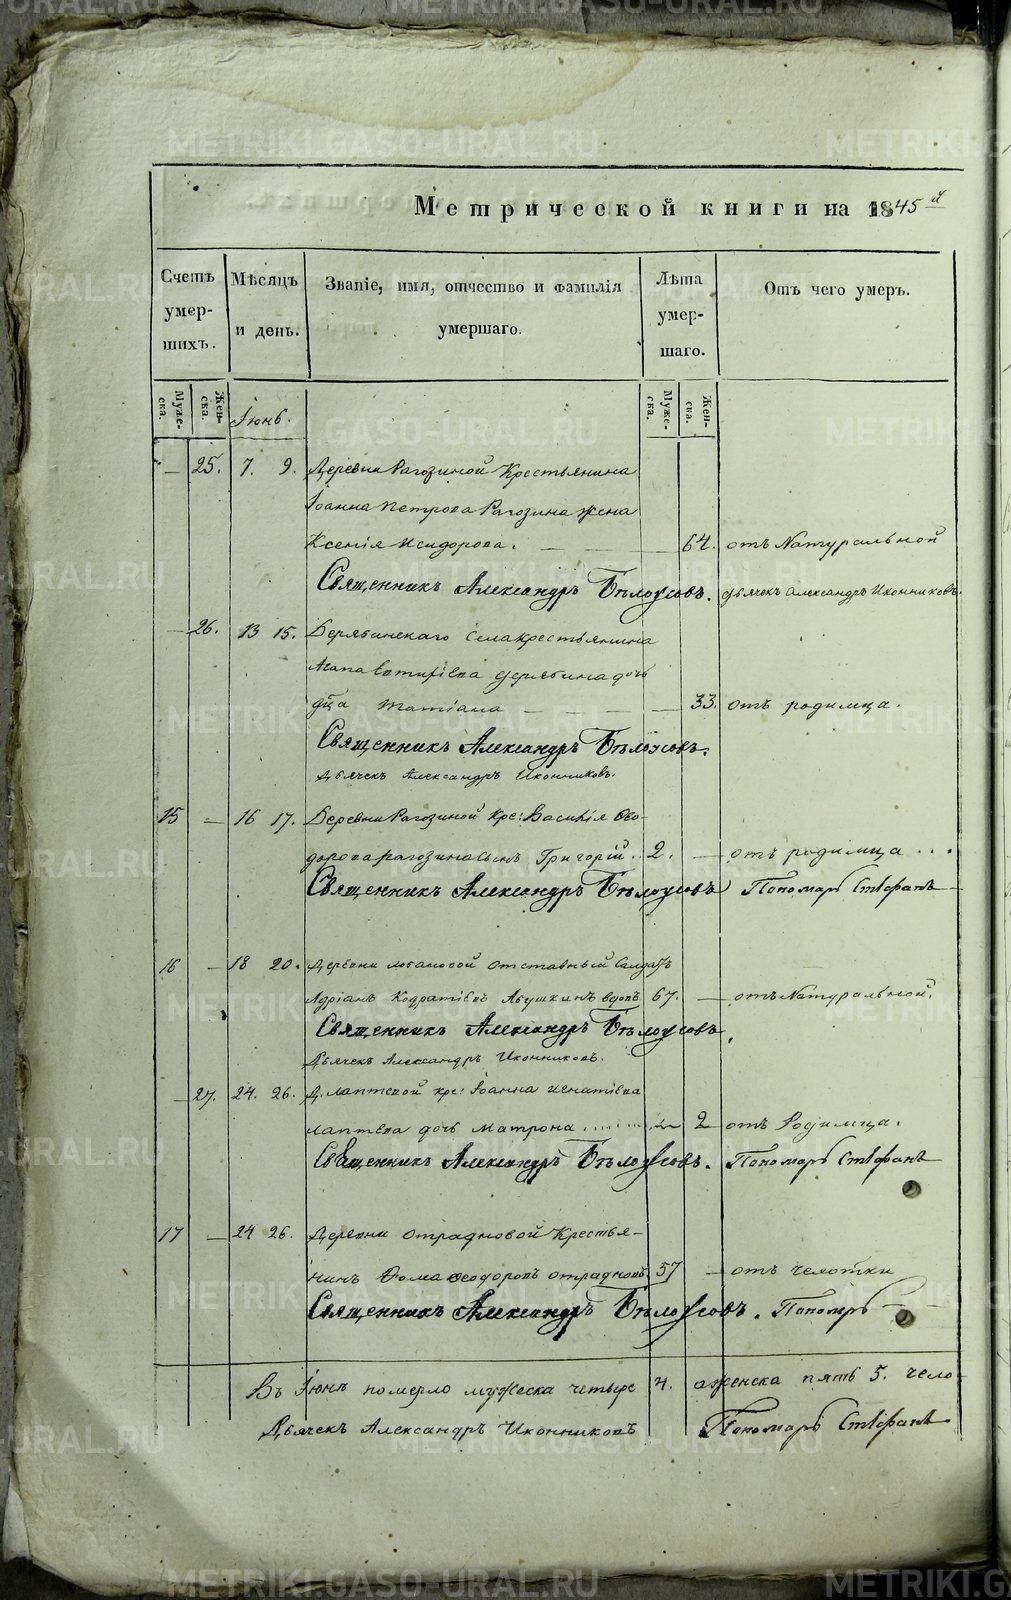 METRIKI.GASO-URAL.RU
Метрической книги на 1845й
Счетъ умер-шихъ.
Мѣсяцъ и день.
Званіе, имя, отчество и фамилія умершаго.
Лѣта умер-шаго.
Отъ чего умеръ.
Муже-ска.
Жен-ска.
Іюнь.
Муже-ска.
Жен-ска.
— 25. 7. 9. Деревни Рагозиной Крестьянина
Іоанна Петрова Рагозина жена
Ксенія Исидорова. — — — 64. отъ Натуральной
Священникъ Александръ Бѣлоусовъ. дьячекъ Александръ Иконниковъ.
— 26. 13 15. Села Крестьянина
дочь
дѣца Татіана — — — — 33. отъ родимца.
Священникъ Александръ Бѣлоусовъ.
Дьячекъ Александръ Иконниковъ.
15 — 16 17. Деревни Рагозиной Кре: Василія Ѳео-
дорова рагозина сынъ Григорій.. 2. — отъ родимца ...
Священникъ Александръ Бѣлоусовъ Пономарь Стефанъ
16 — 18 20. Деревни лобановой отставный Салдатъ
Адріанъ Кодратіевъ вдовъ 67. — отъ Натуральной.
Священникъ Александръ Бѣлоусовъ
Дьячекъ Александръ Иконниковъ.
— 27. 24. 26. Д. лаптевой кре: Іоанна Игнатіева
лаптева дочь Матрона ........ — 2 отъ Родимца.
Священникъ Александръ Бѣлоусовъ. Пономарь Стефанъ
17 — 24 26. Деревни отрадновой Крестья-
нинъ Ѳома Ѳеодоровъ отрадновъ. 57 — отъ чехотки
Священникъ Александръ Бѣлоусовъ. Пономрь —
Въ Іюнѣ померло мужеска четыре 4. а женска пять 5. чело-
Дьячекъ Александръ Иконниковъ Пономарь Стефанъ